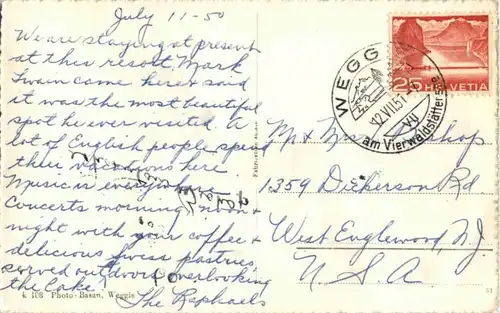 July 11-50
We are staying at present
at this resort. Mark
Twain came here & said
it was the most beautiful
spot he ever visited. A
lot of English people spend
their vacations here
Music is everywhere
Concerts morning, noon &
night with your coffee &
delicious Swiss pastries
served outdoors overlooking
the Lake!
The Raphaels
k 108 Photo-Basan, Weggis
WEGGIS
12.VII.51
am Vierwaldstättersee
25 HELVETIA
Mr & Mrs.
1359 Dickerson Rd
West Englewood, N.J
U.S.A
51